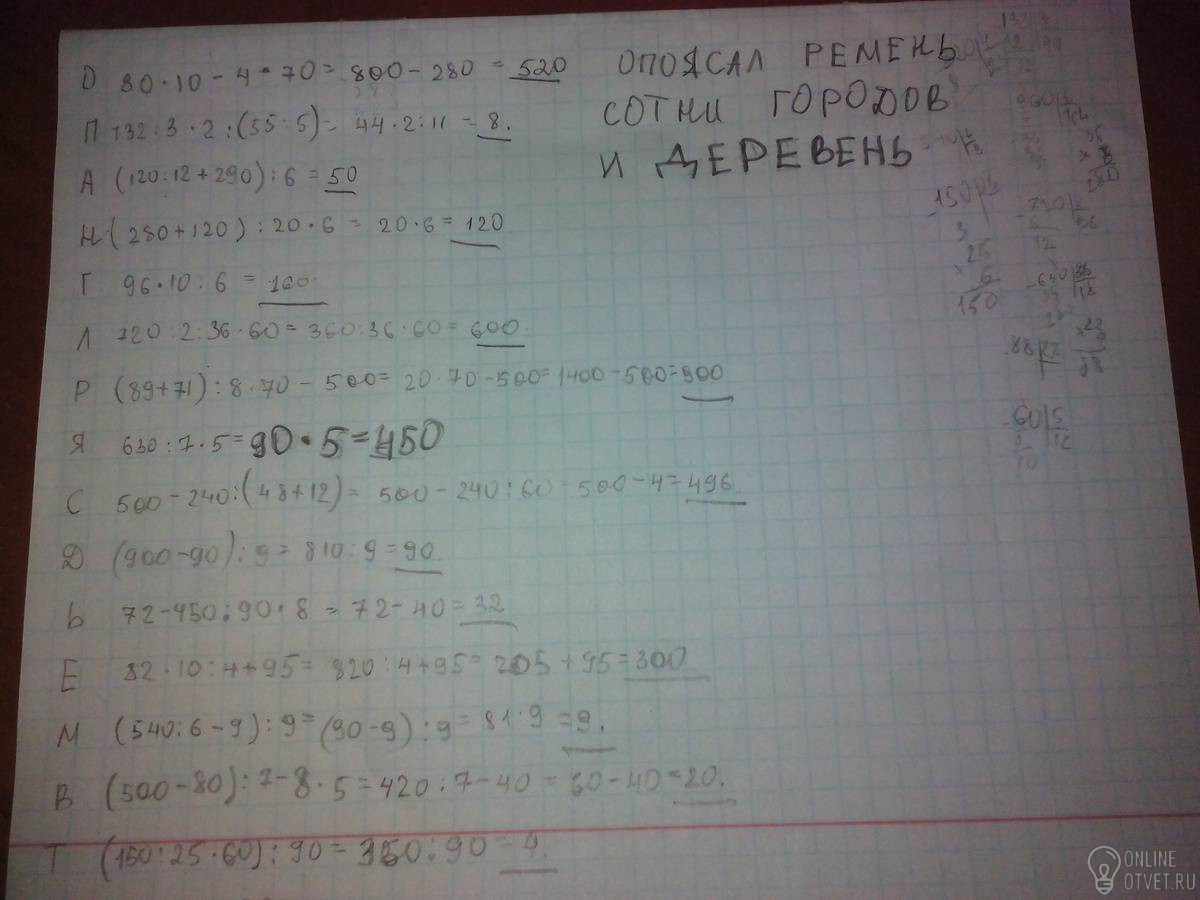 О 80·10-4·70=800-280=520
П 132:3·2:(55:5)=44·2:11=8.
А (120:12+290):6=50
Н (280+120):20·6=20·6=120
Г 96·10:6=160.
Л 720:2:36·60=360:36·60=600
Р (89+71):8·70-500=20·70-500=1400-500=900
Я 630:7·5=90·5=450
С 500-240:(48+12)=500-240:60=500-4=496
Д (900-90):9=810:9=90
Ь 72-450:90·8=72-40=32
Е 82·10:4+95=820:4+95=205+95=300
М (540:6-9):9=(90-9):9=81:9=9.
В (500-80):7-8·5=420:7-40=60-40=20.
Т (150:25·60):90=360:90=4.
ОПОЯСАЛ РЕМЕНЬ
СОТНИ ГОРОДОВ
И ДЕРЕВЕНЬ
150
3
25
× 6
150
60|5
12
10
ONLINE
OTVET.RU